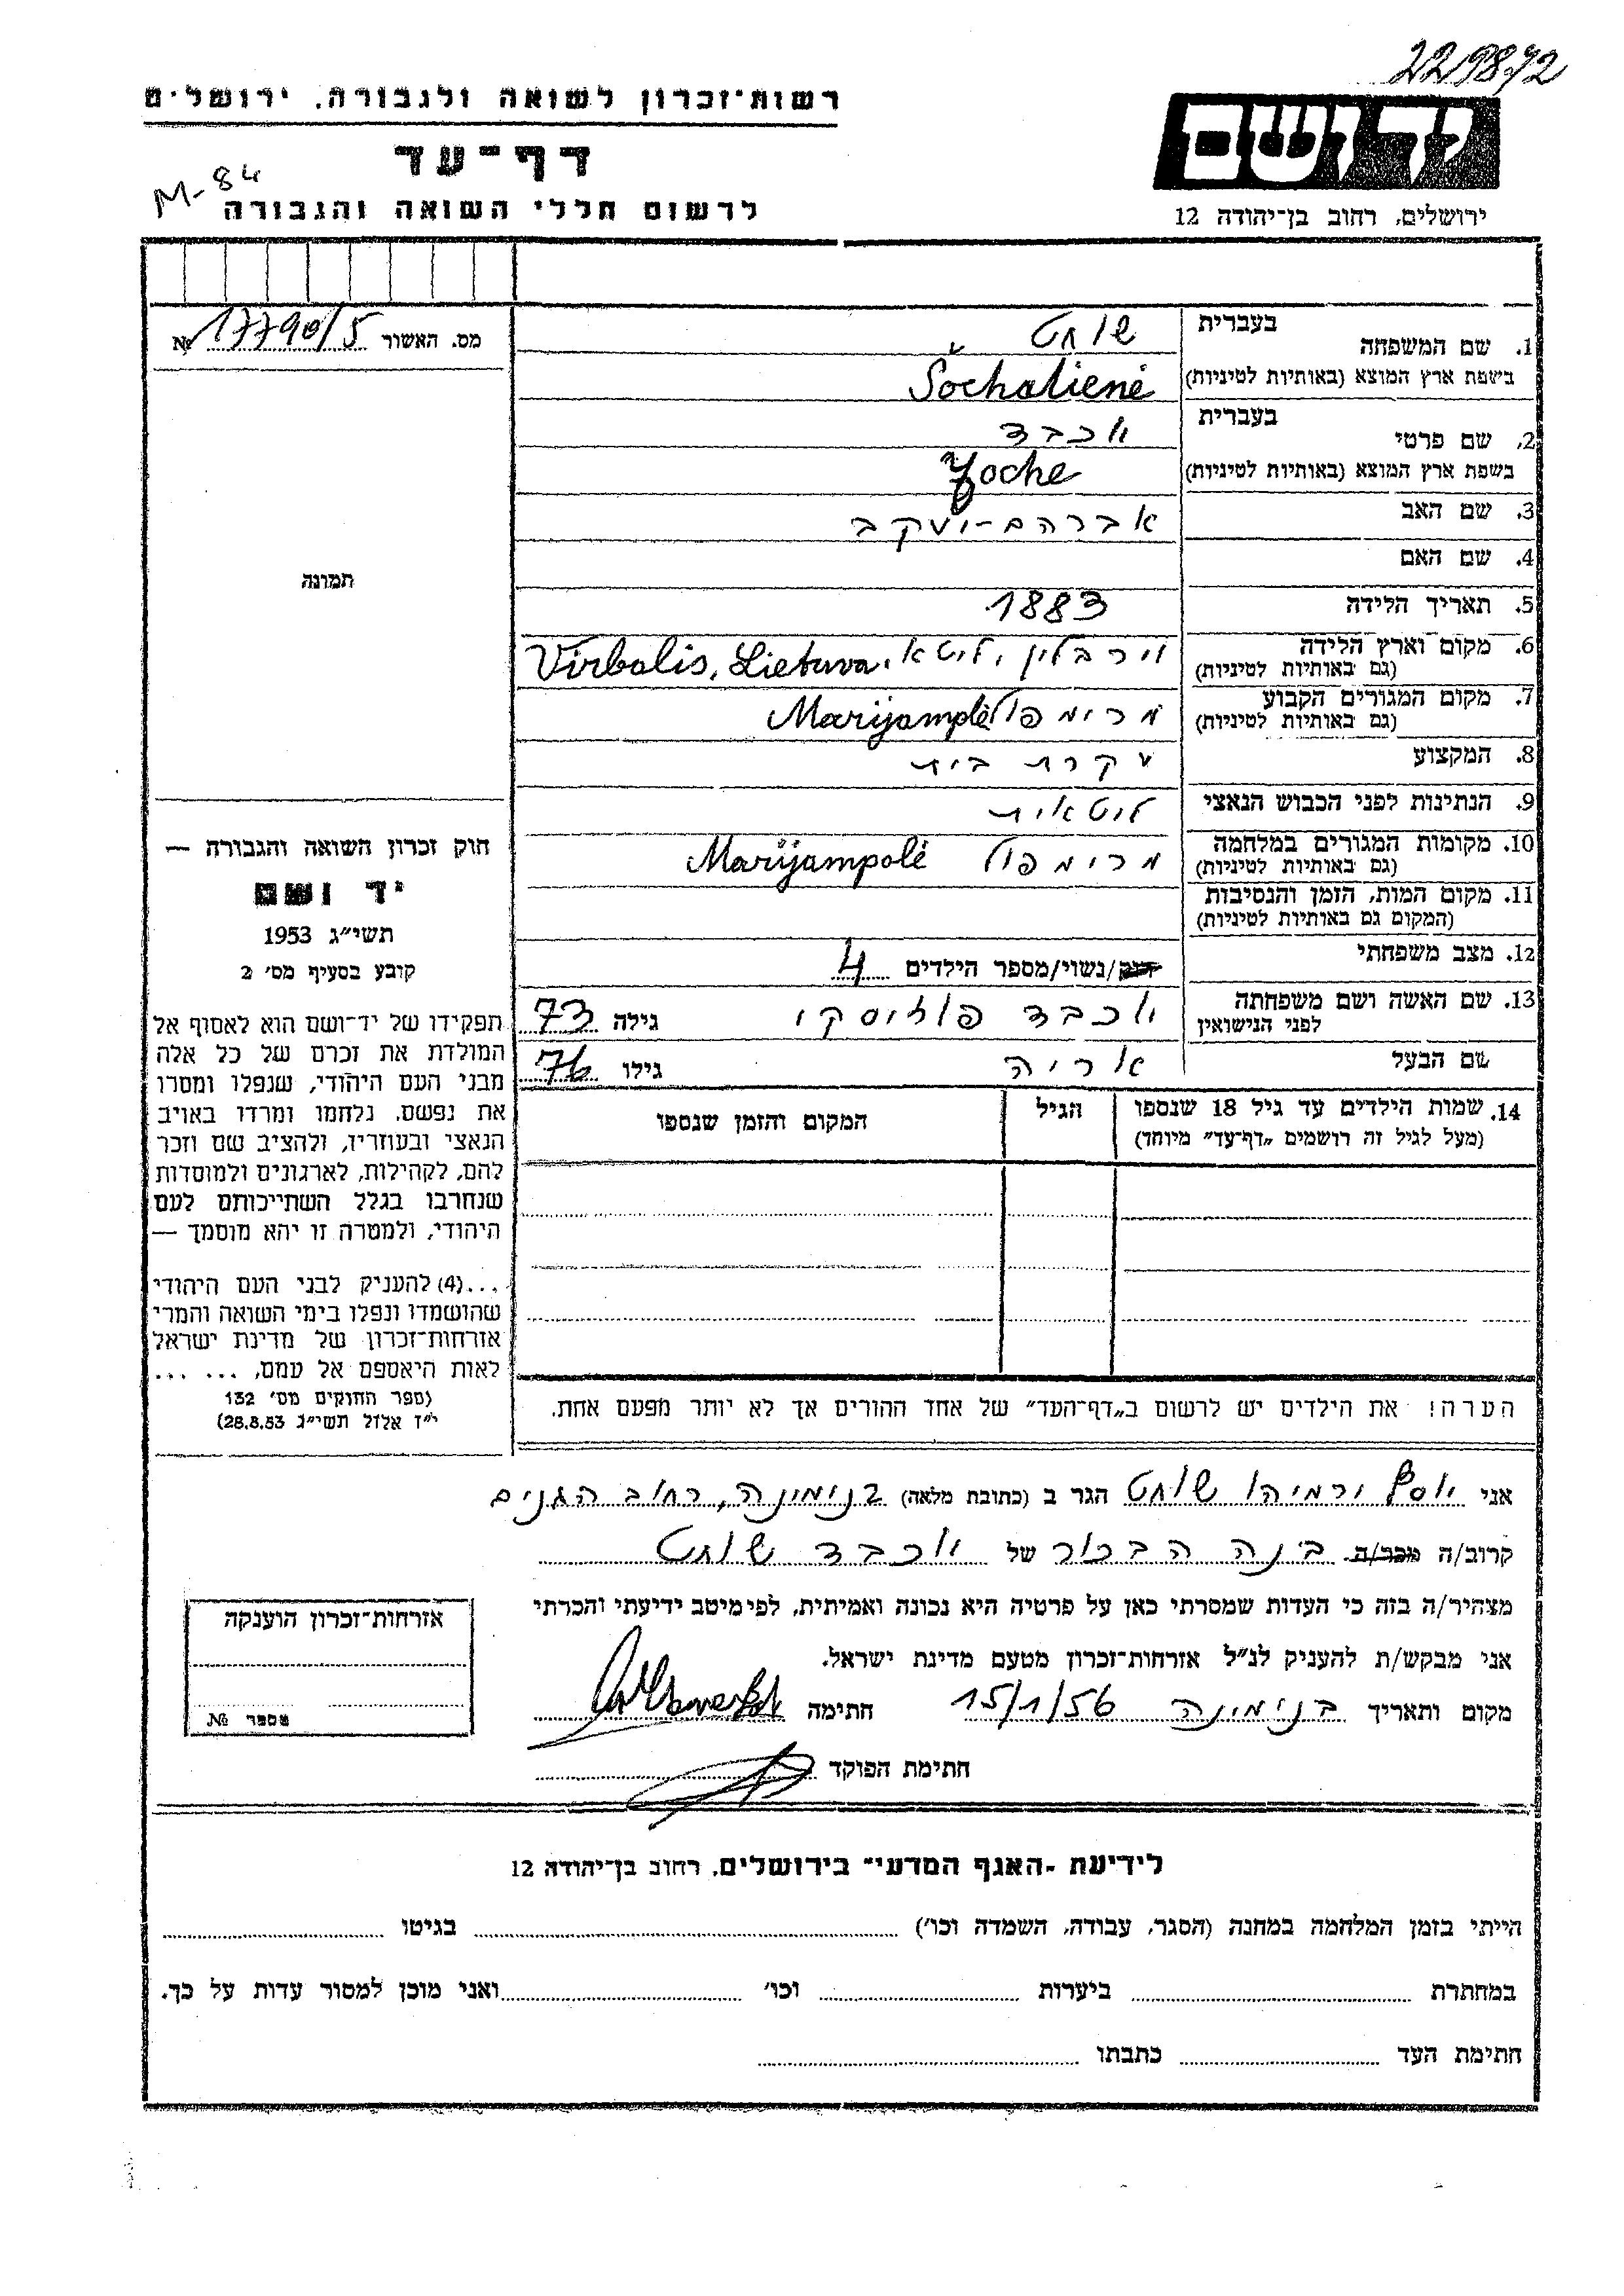 229872
רשות־זכרון לשואה ולגבורה, ירושלים
דף־עד
M-84
לרשום חללי השואה והגבורה
ידושם
ירושלים, רחוב בן־יהודה 12
מס. האשור № 17790/5
תמונה
1. שם המשפחה בעברית שוחט
בשפת ארץ המוצא (באותיות לטיניות) Šochatienė
2. שם פרטי בעברית יוכבד
בשפת ארץ המוצא (באותיות לטיניות) Joche
3. שם האב אברהם-יעקב
4. שם האם
5. תאריך הלידה 1883
6. מקום וארץ הלידה (גם באותיות לטיניות) וירבלין, ליטא, Virbalis, Lietuva
7. מקום המגורים הקבוע (גם באותיות לטיניות) מרימפול Marijampolė
8. המקצוע עקרת בית
9. הנתינות לפני הכבוש הנאצי ליטאית
10. מקומות המגורים במלחמה (גם באותיות לטיניות) מרימפול Marijampolė
11. מקום המות, הזמן והנסיבות
(המקום גם באותיות לטיניות)
12. מצב משפחתי רוק/נשוי/מספר הילדים 4
13. שם האשה ושם משפחתה לפני הנישואין יוכבד גילה 73
שם הבעל אריה גילו 76
14. שמות הילדים עד גיל 18 שנספו הגיל המקום והזמן שנספו
(מעל לגיל זה רושמים „דף־עד" מיוחד)
הערה! את הילדים יש לרשום ב„דף־העד" של אחד ההורים אך לא יותר מפעם אחת.
חוק זכרון השואה והגבורה —
יד ושם
תשי״ג 1953
קובע בסעיף מס׳ 2
תפקידו של יד־ושם הוא לאסוף אל
המולדת את זכרם של כל אלה
מבני העם היהודי, שנפלו ומסרו
את נפשם, נלחמו ומרדו באויב
הנאצי ובעוזריו, ולהציב שם וזכר
להם, לקהילות, לארגונים ולמוסדות
שנחרבו בגלל השתייכותם לעם
היהודי, ולמטרה זו יהא מוסמך —
...(4) להעניק לבני העם היהודי
שהושמדו ונפלו בימי השואה והמרי
אזרחות־זכרון של מדינת ישראל
לאות היאספם אל עמם, ... ...
(ספר החוקים מס׳ 132
י״ז אלול תשי״ג 28.8.53)
אני יוסף ירמיהו שוחט הגר ב (כתובת מלאה) בנימינה, רחוב הגנים
קרוב/ה מכר/ה בנה הבכור של יוכבד שוחט
מצהיר/ה בזה כי העדות שמסרתי כאן על פרטיה היא נכונה ואמיתית, לפי מיטב ידיעתי והכרתי
אני מבקש/ת להעניק לנ״ל אזרחות־זכרון מטעם מדינת ישראל.
מקום ותאריך בנימינה 15/1/56 חתימה
חתימת הפוקד
אזרחות־זכרון הוענקה
מספר №
לידיעת „האגף המדעי" בירושלים, רחוב בן־יהודה 12
הייתי בזמן המלחמה במחנה (הסגר, עבודה, השמדה וכו׳) בגיטו
במחתרת ביערות וכו׳ ואני מוכן למסור עדות על כך.
חתימת העד כתבתו